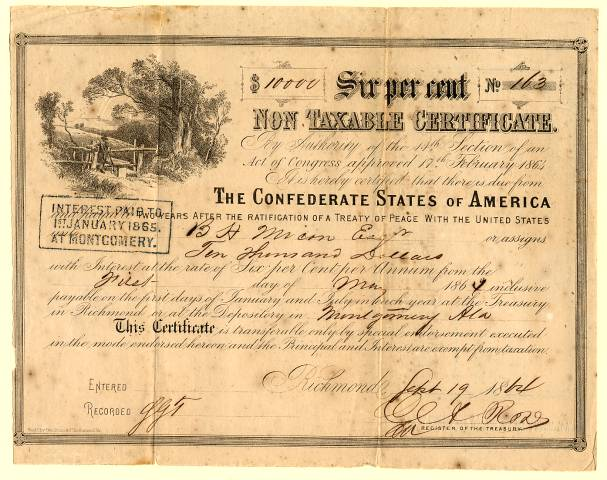 $ 10000 Six per cent No 163
NON TAXABLE CERTIFICATE.
By Authority of the 14th Section of an
Act of Congress approved 17th February 1864
It is hereby certified that there is due from
THE CONFEDERATE STATES OF AMERICA
TWO YEARS AFTER THE RATIFICATION OF A TREATY OF PEACE WITH THE UNITED STATES
INTEREST PAID TO
1ST JANUARY 1865.
AT MONTGOMERY.
B H Micon Esqr or assigns
Ten Thousand Dollars
with Interest at the rate of Six per Cent per Annum from the
First day of May 1864 inclusive
payable on the first days of January and July in each year at the Treasury
in Richmond or at the Depository in Montgomery Ala
This Certificate is transferable only by special endorsement executed
in the mode endorsed hereon and the Principal and Interest are exempt from taxation.
Richmond Sept 19 1864
ENTERED
RECORDED
REGISTER OF THE TREASURY